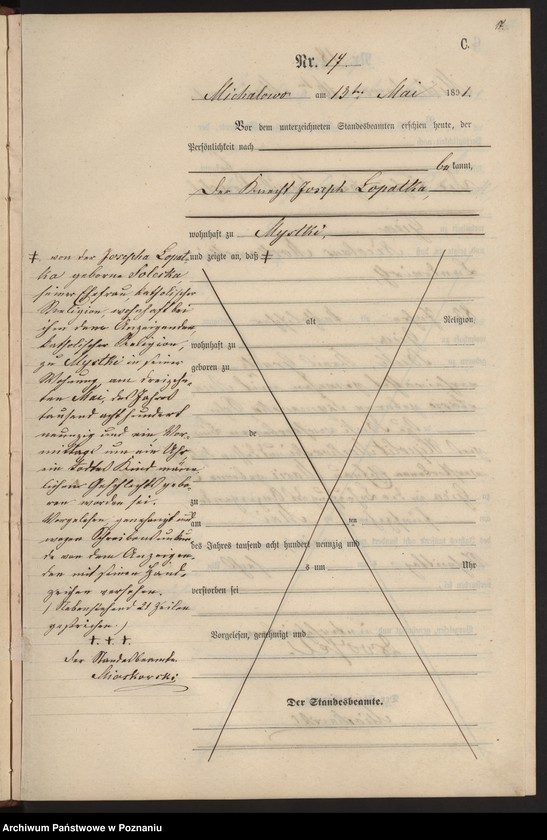 17
C.
Nr. 17.
Michalowo am 13ten Mai 1891.
Vor dem unterzeichneten Standesbeamten erschien heute, der
Persönlichkeit nach
bekannt,
Der Knecht Joseph Lopatka,
wohnhaft zu Mystki,
und zeigte an, daß ‡
‡ von der Josepha Lopat-
ka geborne Solecka
seiner Ehefrau, katholischer
Religion, wohnhaft bei
ihm dem Anzeigenden
katholischer Religion,
zu Mystki in seiner
Wohnung am dreizehn-
ten Mai, des Jahres
tausend acht hundert
neunzig und ein, Vor-
mittags um ein Uhr
ein todtes Kind männ-
lichen Geschlechts gebo-
ren worden sei.
Vorgelesen, genehmigt und
wegen Schreibensunkun-
de von dem Anzeigen-
den mit seinen Hand-
zeichen versehen.
/ Nebenstehend 21 Zeilen
gestrichen. /
† † †
Der Standesbeamte
Mioskowski
alt Religion,
wohnhaft zu
geboren zu
de
zu
am ten
des Jahres tausend acht hundert neunzig und
s um Uhr
verstorben sei
Vorgelesen, genehmigt und
Der Standesbeamte.
Archiwum Państwowe w Poznaniu